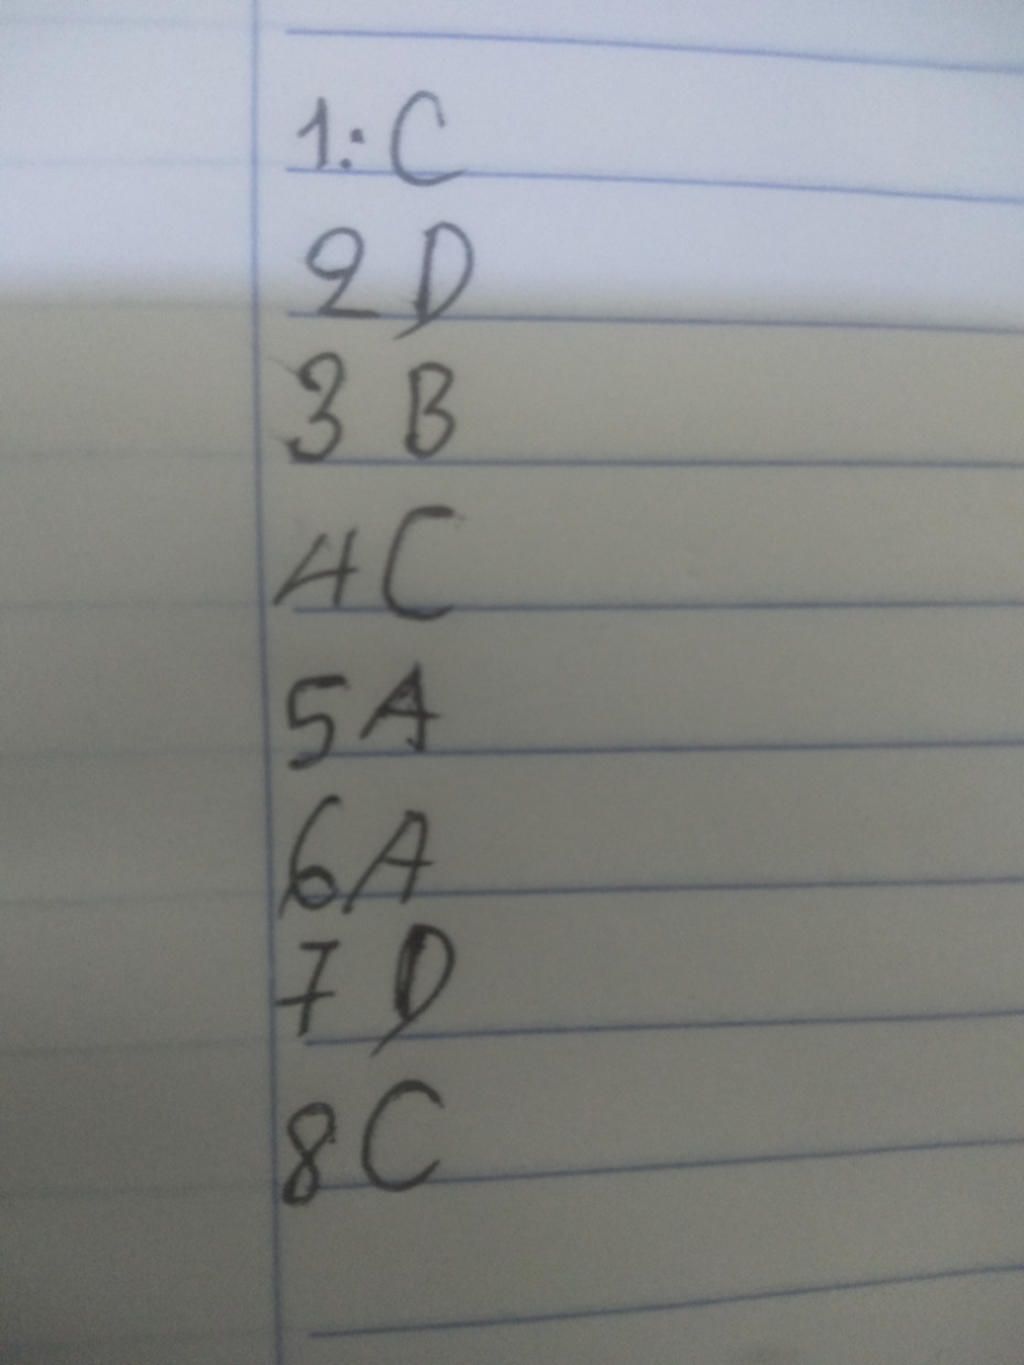 1: C
2 D
3 B
4 C
5 A
6 A
7 D
8 C